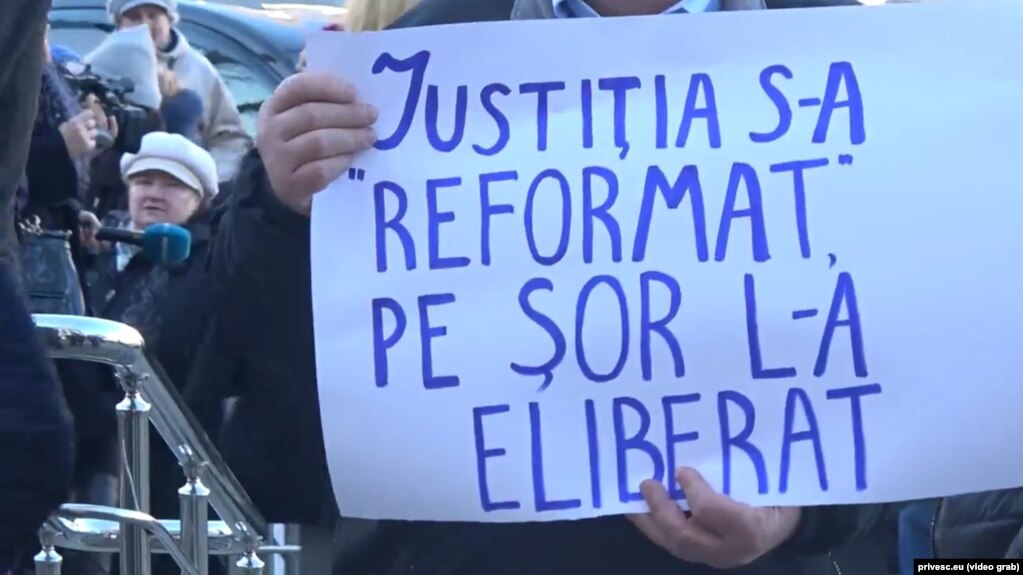 JUSTIȚIA S-A
"REFORMAT",
PE ȘOR L-A
ELIBERAT
privesc.eu (video grab)